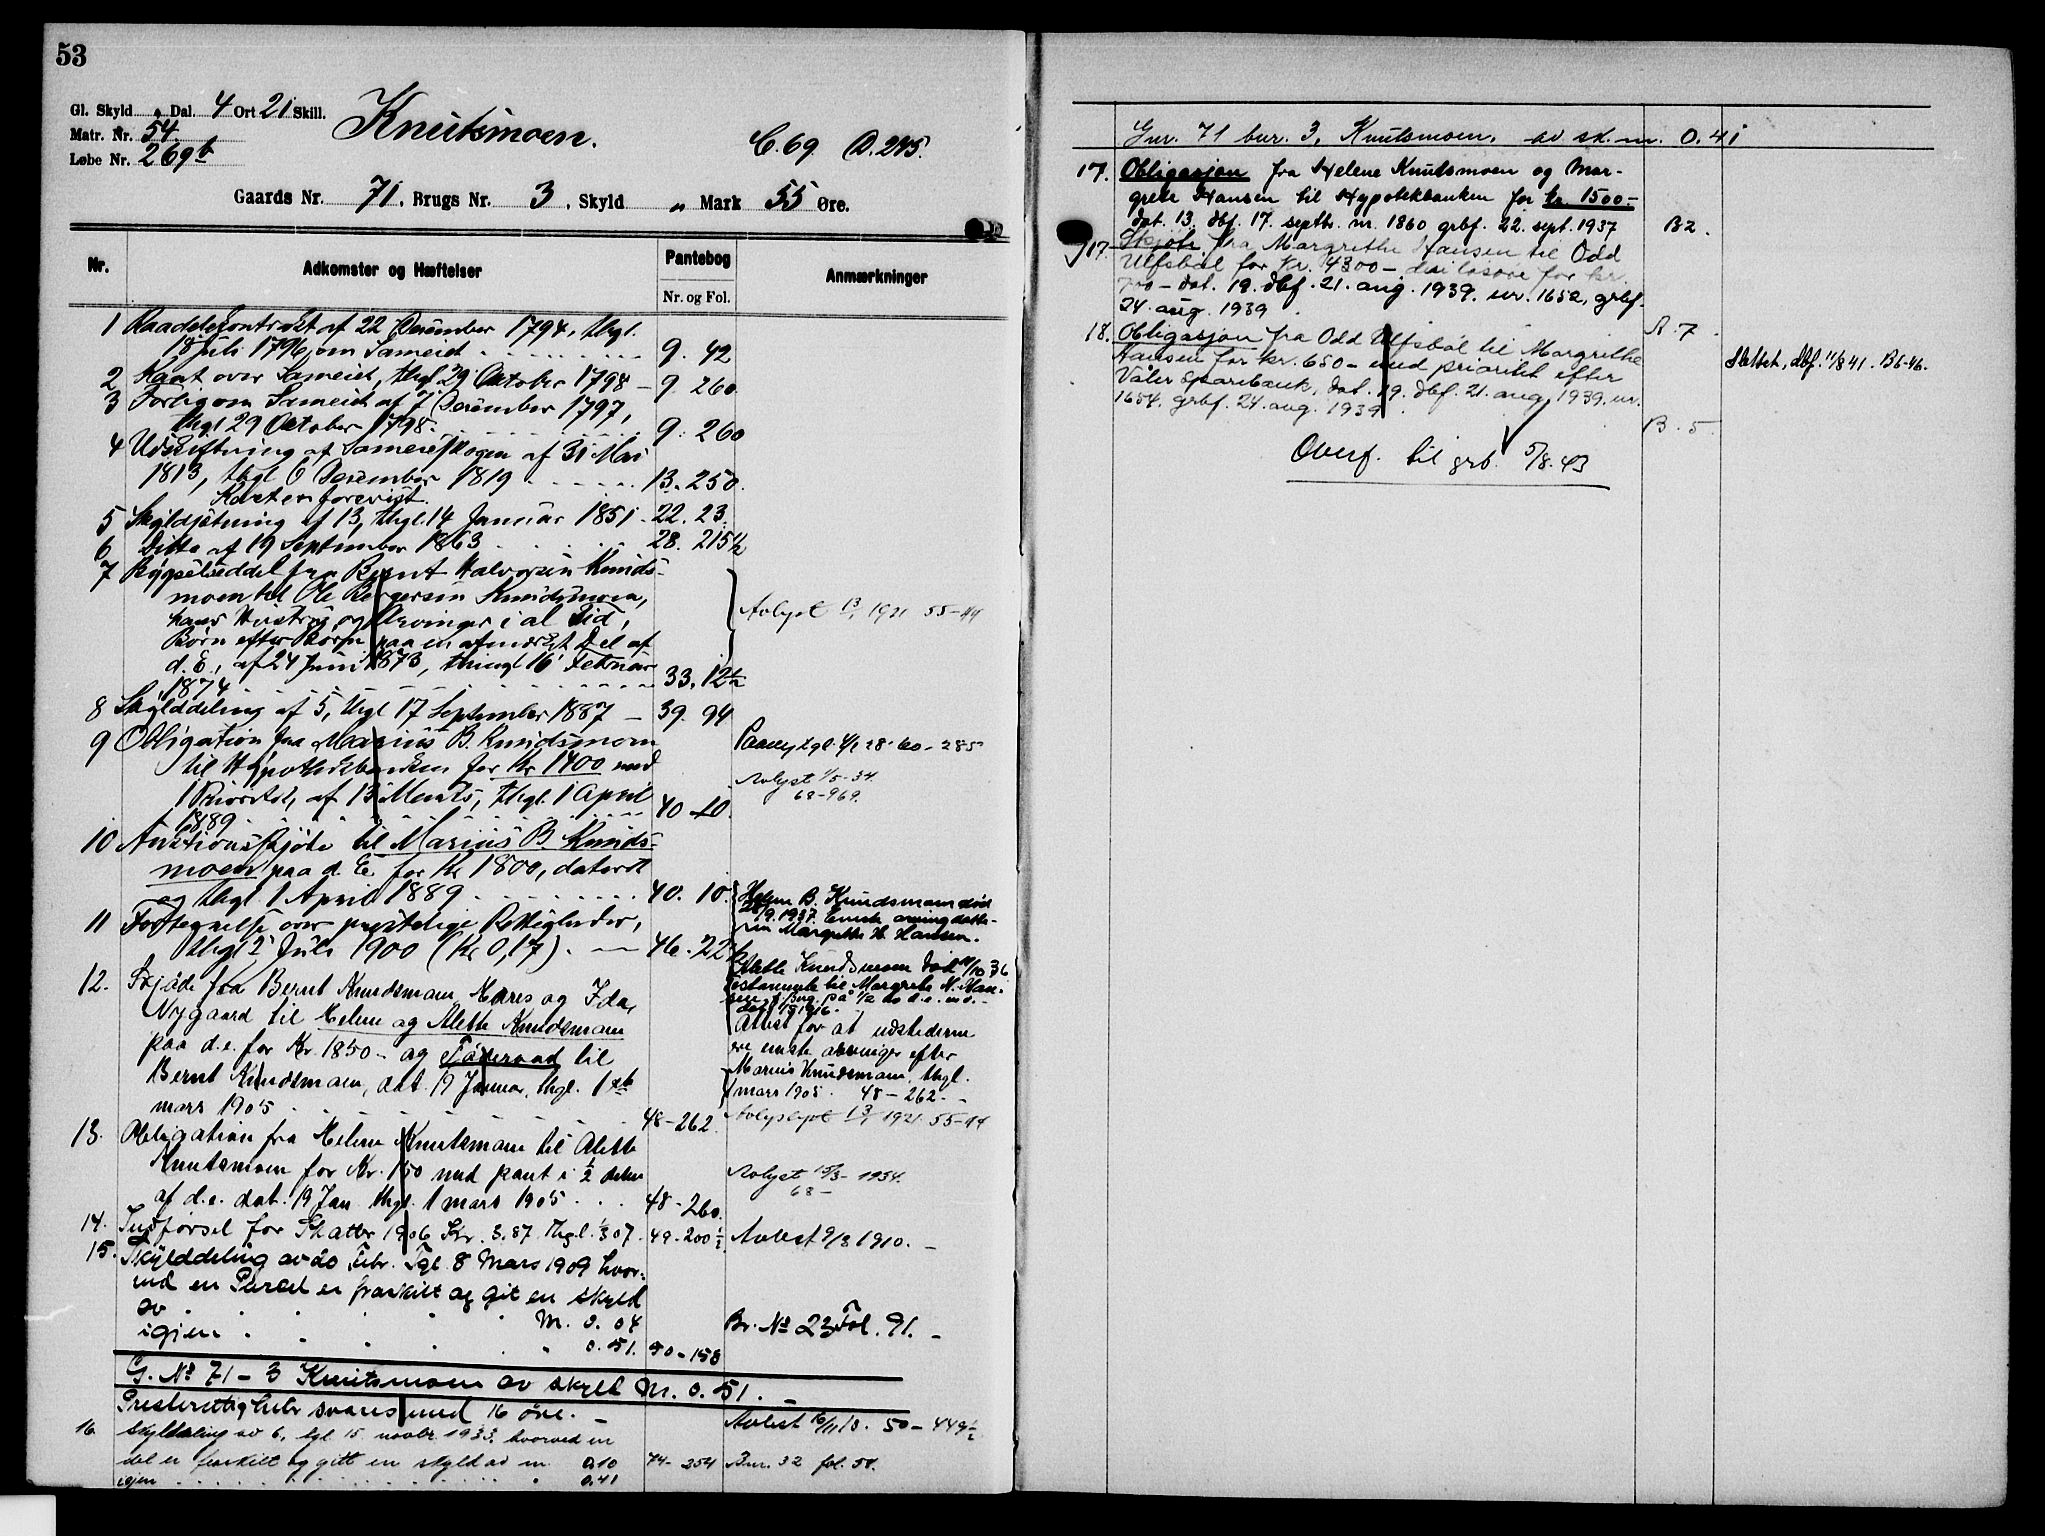 53
Gl. Skyld „ Dal. 4 Ort 21 Skill.
Matr. Nr. 54
Løbe Nr. 269b
Knutsmoen.
C. 69 D. 245.
Gaards Nr. 71, Brugs Nr. 3, Skyld „ Mark 55 Øre.
Nr.
Adkomster og Hæftelser
Pantebog
Nr. og Fol.
Anmærkninger
1 Raadekontrakt af 22 December 1794, thgl.
18 Juli 1796, om Sameiet 9. 42
2 Kart over Sameiet, thgl. 29 Oktober 1798 — 9. 260
3 Forlig om Sameiet af 7 December 1797,
thgl 29 Oktober 1798. 9. 260
4 Udskiftning af Sameieskogen af 31 Mai
1813, thgl 6 December 1819 13. 250.
Kartet forevist.
5 Skyldsætning af 13, thgl. 14 Januar 1851. 22. 23.
6 Ditto af 19 September 1863 28. 215½
7 Bygselseddel fra Bernt Halvorsen Knuds-
moen til Ole Bergersen Knudsmoen,
hans Hustru og Arvinger i al Tid,
Børn efter Børn paa en afmærket Del af
d. E., af 24 Juni 1873, thingl 16 Februar
1874 33. 12½
Avlyst 13/ 1921 55-44
8 Skylddeling af 5, thgl 17 September 1887 — 39. 94
9 Obligation fra Marius B. Knudsmoen
til Hypothekbanken for Kr 1400 med
1 Prioritet, af 13 Marts, thgl. 1 April
1889 40. 10.
Paany tgl. 4/1 28. 60-285
Avlyst 1/5-34.
68-969.
10 Auktionsskjøte til Marius B. Knuds-
moen paa d. E. for Kr 1800, dateret
og thgl 1 April 1889 40. 10.
Helene B. Knudsmoen død
/9. 1937. Eneste arving datte-
ren Margrethe H. Hansen.
11 Fortegnelse over prestelige Rettigheder,
thgl 2 Juli 1900 (Kr 0,17). — 46. 22½
Alette Knudsmoen død 11/10 36
Testamente til Margrete N. Han-
sen på 1/2 av d.e.
12. Skjøde fra Bernt Knudsmoen, Mares og Ida
Nygaard til Helene og Alette Knudsmoen
paa d.e. for Kr. 1850 - og Føderaad til
Bernt Knudsmoen, dat. 19 Januar, thgl. 1ste
mars 1905 48-262.
Attest for at udstederne
ere eneste arvinger efter
Marius Knudsmoen, thgl.
1 mars 1905. 48-262.-
Avlyst 13/ 1921. 55-44
13. Obligation fra Helene Knutsmoen til Alette
Knutsmoen for Kr. 150 med pant i ½ delen
af d.e. dat. 19 Jan. thgl. 1 mars 1905 48-260.
Avlyst 15/3- 1934.
68-
14. Indførsel for Skatter 1906 Kr. 3.87. Thgl. 1/3 07. 49-200½
Avlest 9/3 1910. -
15. Skylddeling av 20 Febr. Tgl. 8 Mars 1909 hvor-
ved en Parcel er fraskilt og git en skyld
av M. 0. 04
igjen 0. 51. 50-158
Br. No 23 Fol. 91. -
G. No 71-3 Knutsmoen av skyld M. 0. 51. -
Presterettigheter svares med 16 øre. -
Avlest 16/11 18. 50-449½
16 Skylddeling av 6, tgl 15. novbr. 1933, hvorved en
del er fraskilt og gitt en skyld av m. 0.10 74-254 Bnr. 32 fol. 58.
igjen 0.41
Gnr. 71 bnr. 3, Knutsmoen, av sk. m. 0.41
17. Obligasjon fra Helene Knutsmoen og Mar-
grete Hansen til Hypotekbanken for kr. 1500.-
dat. 13. dbf. 17. septbr. nr. 1860 grbf. 22. sept. 1937 B2.
17. Skjøte fra Margrethe Hansen til Odd
Ulfsbøl for Kr. 4300 - derav løsøre for kr.
700 - dat. 19. dbf. 21. aug. 1939. nr. 1652, grbf.
24. aug. 1939. A. 7.
18. Obligasjon fra Odd Ulfsbøl til Margrethe
Hansen for kr. 650 - med prioritet efter
Våler Sparebank, dat. 19. dbf. 21. aug. 1939. nr.
1654. grbf. 24. aug. 1939. B. 5.
Slettet, dbf. 11/8 41. B6-46.
Overf. til grb. 5/8.43